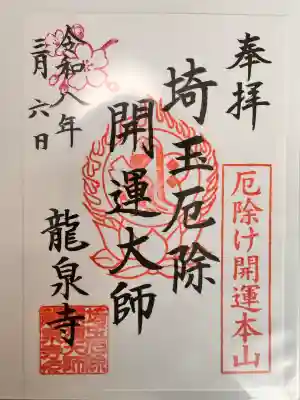 奉拝
厄除け開運本山
埼玉厄除
開運大師
龍泉寺
令和八年
三月六日